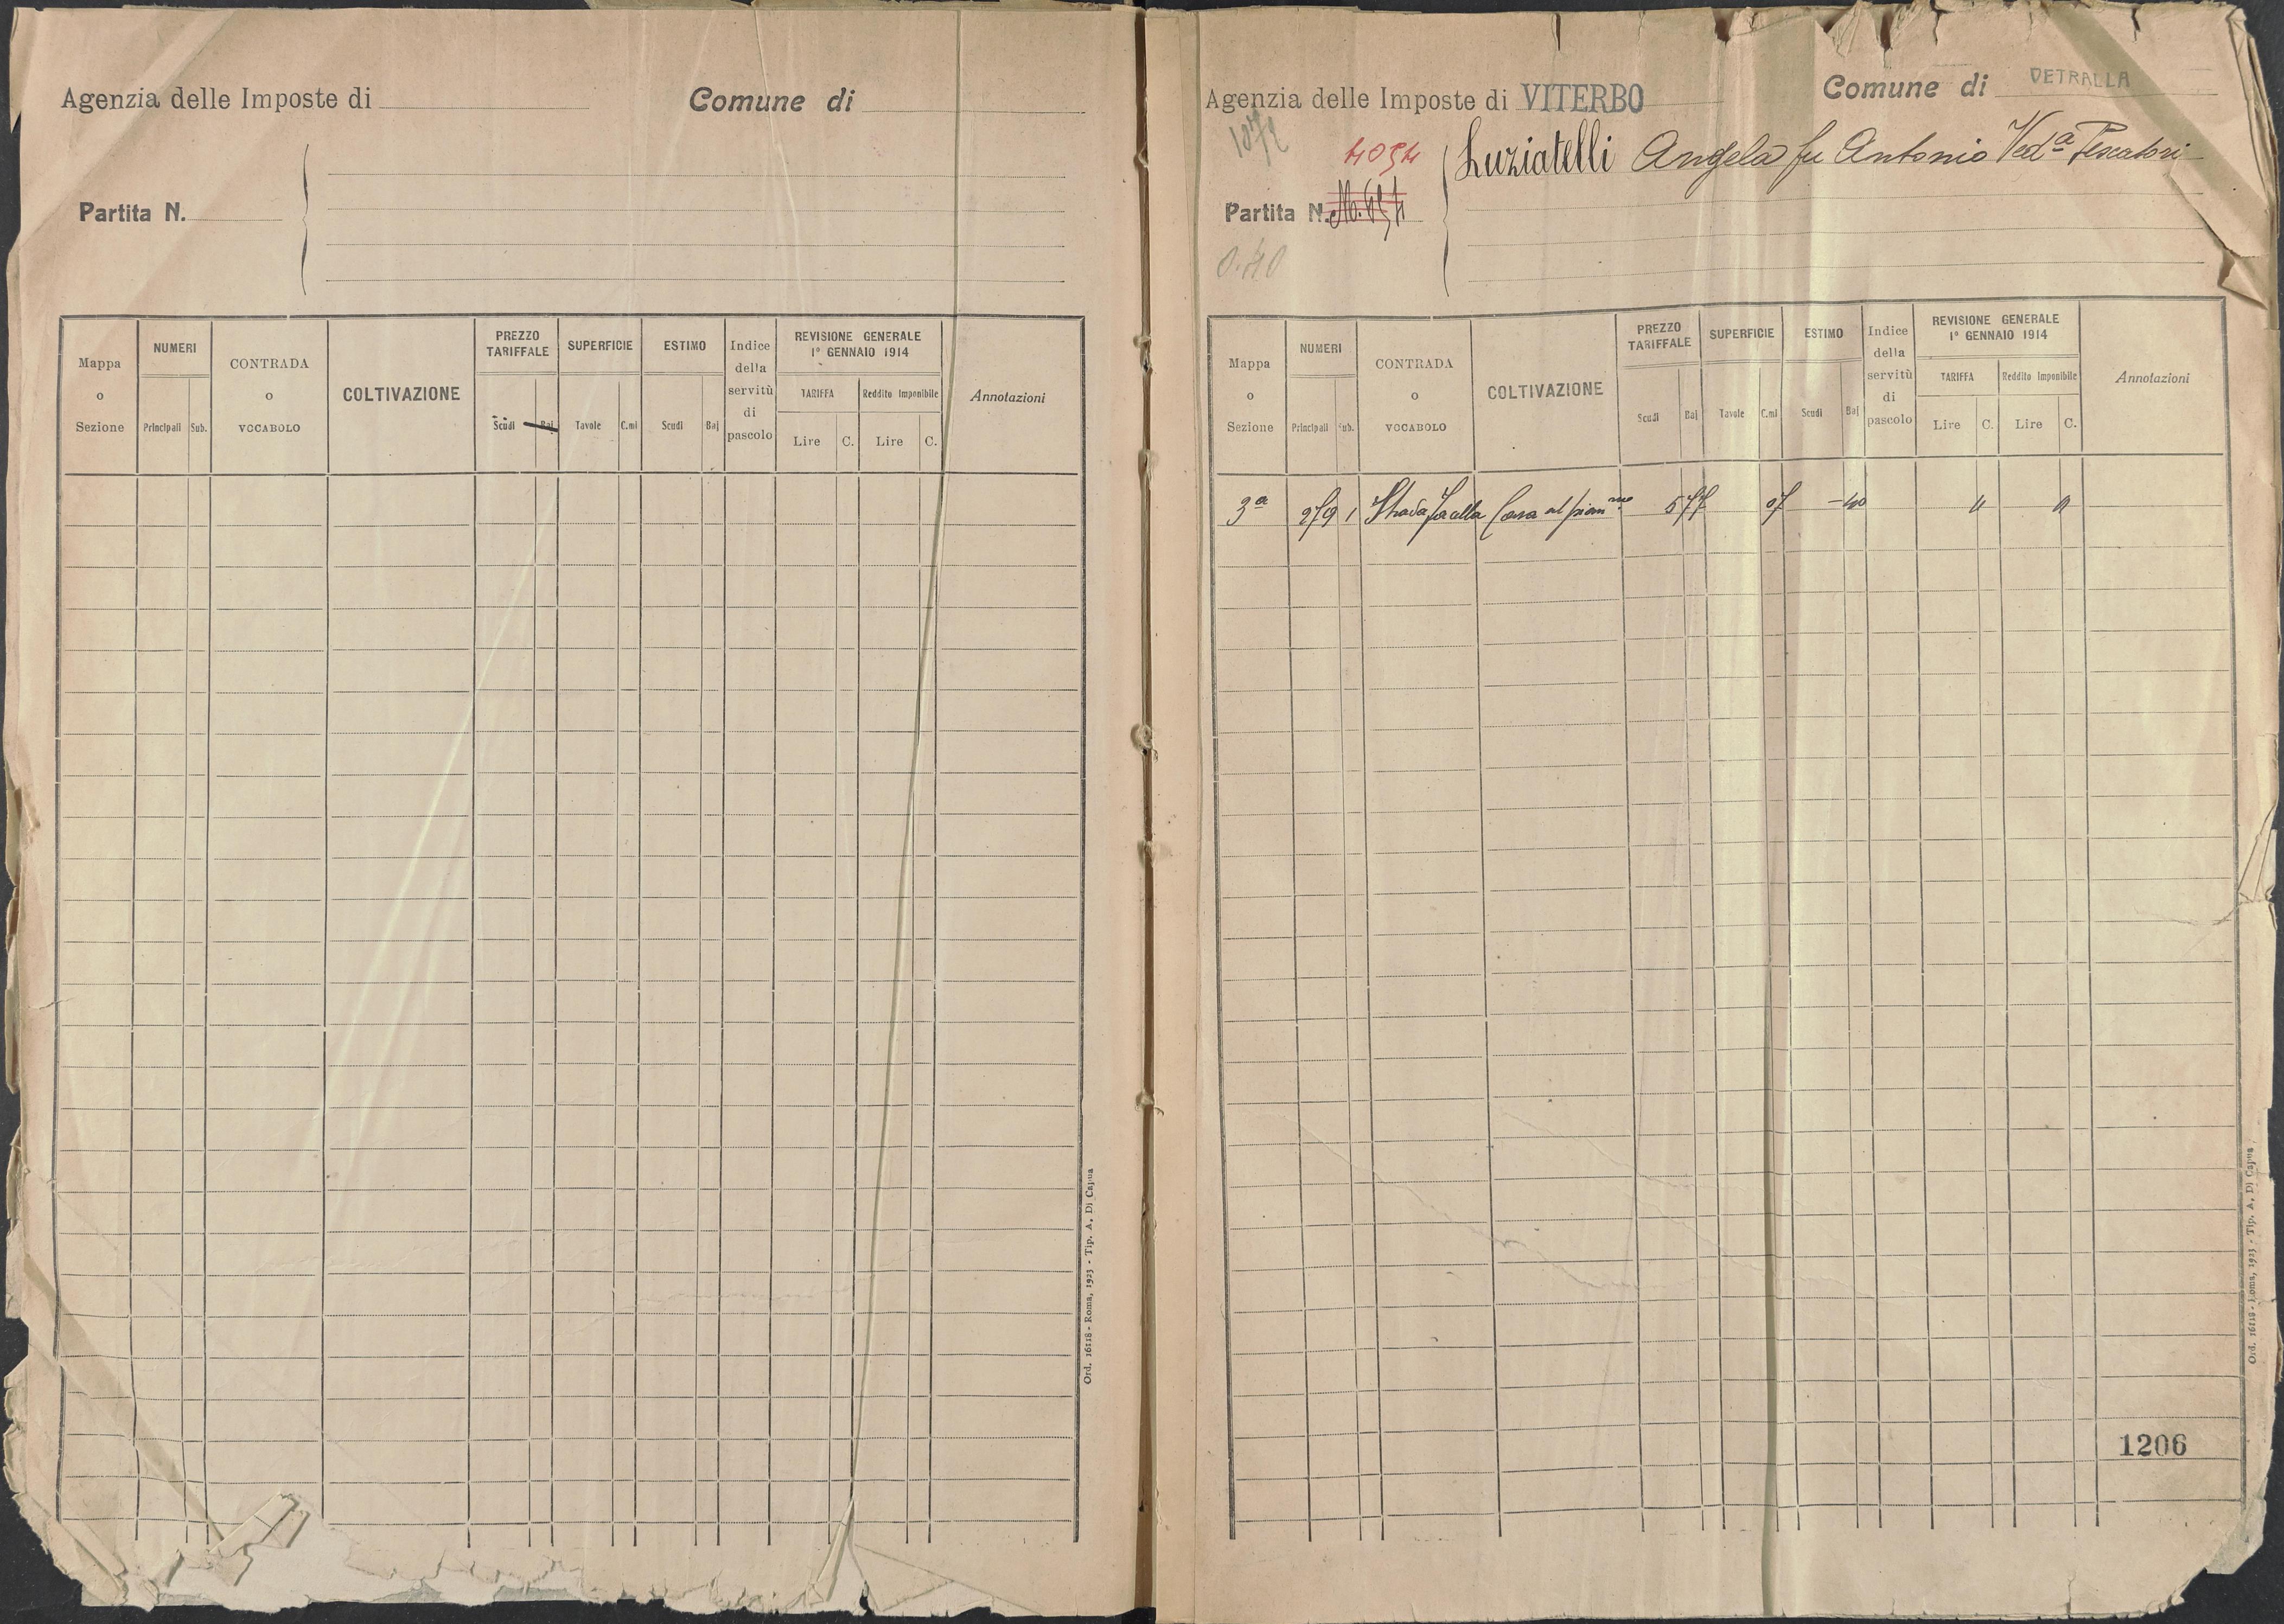 Agenzia delle Imposte di
Comune di
Partita N.
Mappa o Sezione
NUMERI
Principali Sub.
CONTRADA o VOCABOLO
COLTIVAZIONE
PREZZO TARIFFALE
Scudi Baj
SUPERFICIE
Tavole C.mi
ESTIMO
Scudi Baj
Indice della servitù di pascolo
REVISIONE GENERALE
1° GENNAIO 1914
TARIFFA Reddito Imponibile
Lire C. Lire C.
Annotazioni
Ord. 16118 - Roma, 1923 - Tip. A. Di Capua
Agenzia delle Imposte di VITERBO
Comune di VETRALLA
1072
4054
Luziatelli Angela fu Antonio Ved.a Pescatori
Partita N.
0.40
Mappa o Sezione
NUMERI
Principali Sub.
CONTRADA o VOCABOLO
COLTIVAZIONE
PREZZO TARIFFALE
Scudi Baj
SUPERFICIE
Tavole C.mi
ESTIMO
Scudi Baj
Indice della servitù di pascolo
REVISIONE GENERALE
1° GENNAIO 1914
TARIFFA Reddito Imponibile
Lire C. Lire C.
Annotazioni
3a 1 Strada Casa al 577 07 - 40 " "
1206
Ord. 16118 - Roma, 1923 - Tip. A. Di Capua